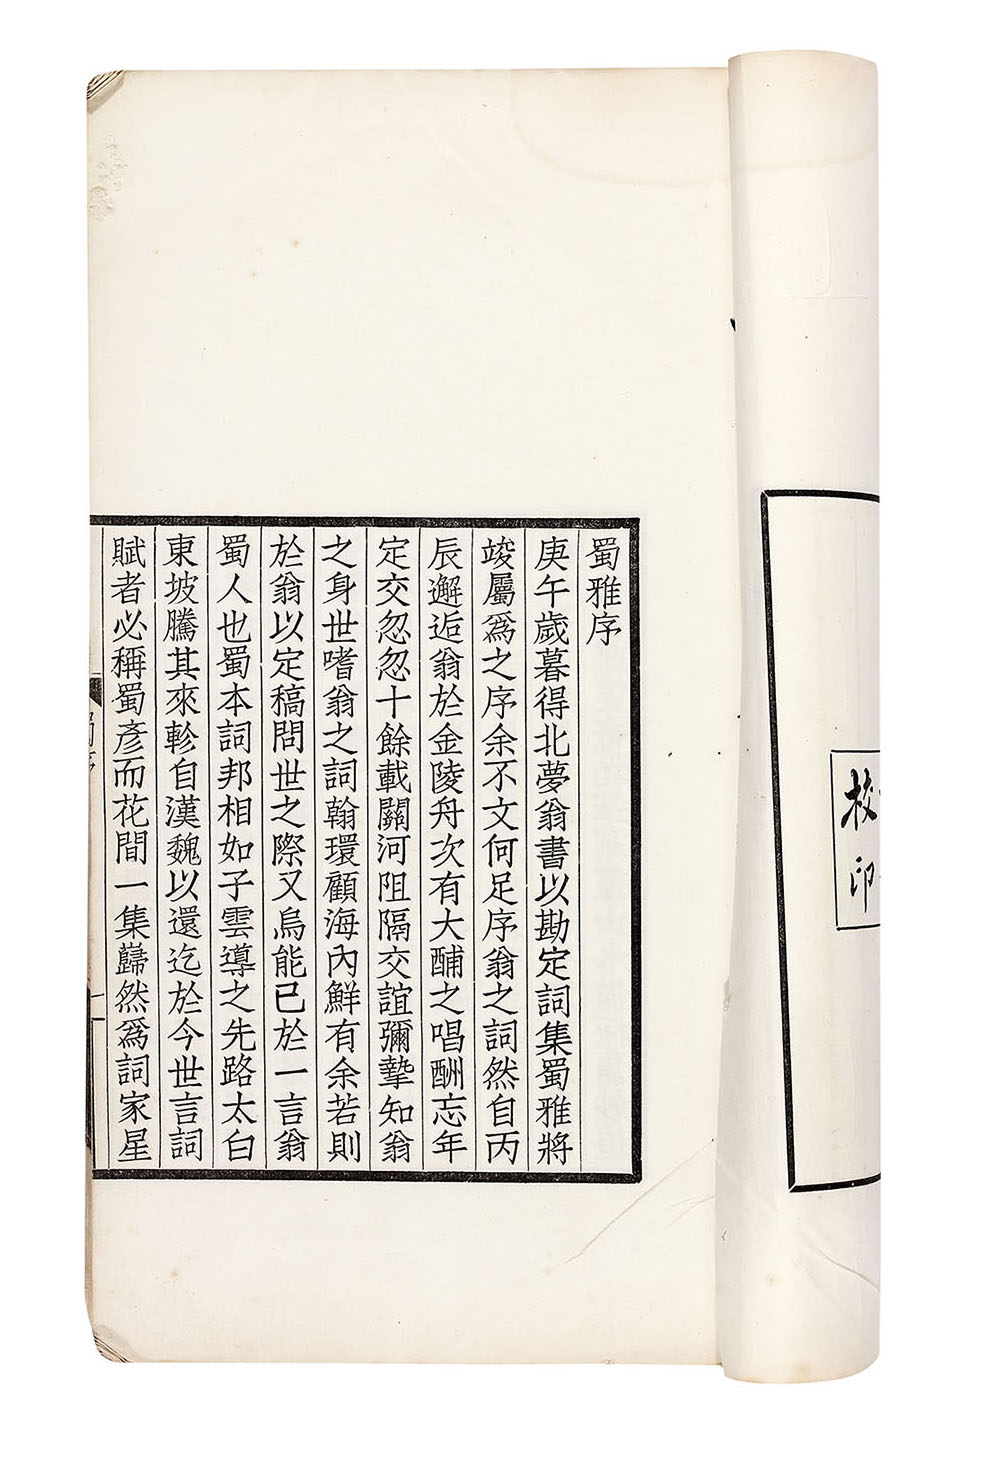 校印
蜀雅序
庚午歲暮得北夢翁書以勘定詞集蜀雅將
竣屬爲之序余不文何足序翁之詞然自丙
辰邂逅翁於金陵舟次有大酺之唱酬忘年
定交忽忽十餘載關河阻隔交誼彌摯知翁
之身世嗜翁之詞翰環顧海內鮮有余若則
於翁以定稿問世之際又烏能已於一言翁
蜀人也蜀本詞邦相如子雲導之先路太白
東坡騰其來軫自漢魏以還迄於今世言詞
賦者必稱蜀彥而花間一集巋然爲詞家星